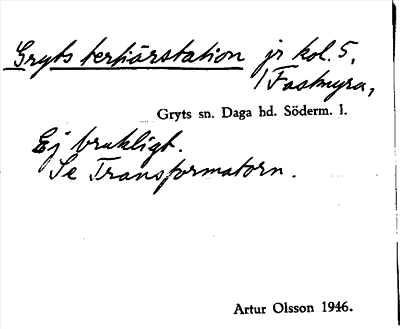 Gryts tertiärstation jr kol. 5,
/ Fastmyra,
Gryts sn. Daga hd. Söderm. l.
Ej brukligt.
Se Transformatorn.
Artur Olsson 1946.